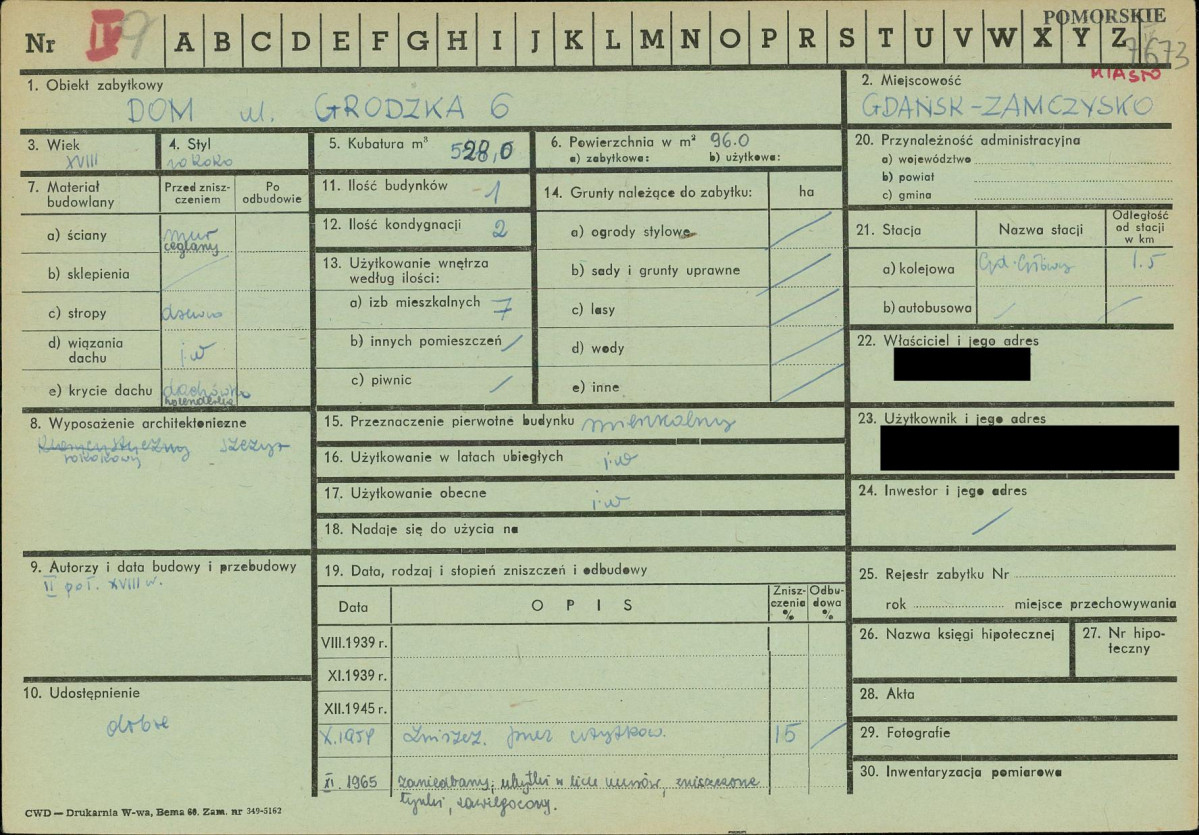 POMORSKIE
Nr IV 9 A B C D E F G H I J K L M N O P R S T U V W X Y Z
7673
MIASTO
1. Obiekt zabytkowy
DOM ul. GRODZKA 6
2. Miejscowość
GDAŃSK-ZAMCZYSKO
3. Wiek
XVIII
4. Styl
rokoko
5. Kubatura m³ 528,0
6. Powierzchnia w m² 96.0
a) zabytkowa: b) użytkowa:
7. Materiał budowlany
Przed zniszczeniem
Po odbudowie
a) ściany mur ceglany
b) sklepienia /
c) stropy drewno
d) wiązania dachu j.w
e) krycie dachu dachówka holenderska
8. Wyposażenie architektoniczne
szczyt
rokokowy
9. Autorzy i data budowy i przebudowy
II poł. XVIII w.
10. Udostępnienie
dobre
11. Ilość budynków 1
12. Ilość kondygnacji 2
13. Użytkowanie wnętrza według ilości:
a) izb mieszkalnych 7
b) innych pomieszczeń /
c) piwnic /
14. Grunty należące do zabytku: ha
a) ogrody stylowe /
b) sady i grunty uprawne /
c) lasy /
d) wody /
e) inne /
15. Przeznaczenie pierwotne budynku mieszkalny
16. Użytkowanie w latach ubiegłych j.w
17. Użytkowanie obecne j.w
18. Nadaje się do użycia na
19. Data, rodzaj i stopień zniszczeń i odbudowy
Data OPIS Zniszczenia % Odbudowa %
VIII.1939 r.
XI.1939 r.
XII.1945 r.
X.1959 zniszcz. przez użytkow. 15 /
XI. 1965 zaniedbany; ubytki w licu murów, zniszczone
tynki, zawilgocony.
20. Przynależność administracyjna
a) województwo
b) powiat
c) gmina
21. Stacja Nazwa stacji Odległość od stacji w km
a) kolejowa Gd. Główny 1.5
b) autobusowa / /
22. Właściciel i jego adres
23. Użytkownik i jego adres
24. Inwestor i jego adres
/
25. Rejestr zabytku Nr
rok miejsce przechowywania
26. Nazwa księgi hipotecznej
27. Nr hipoteczny
28. Akta
29. Fotografie
30. Inwentaryzacja pomiarowa
CWD — Drukarnia W-wa, Bema 60. Zam. nr 349-5162